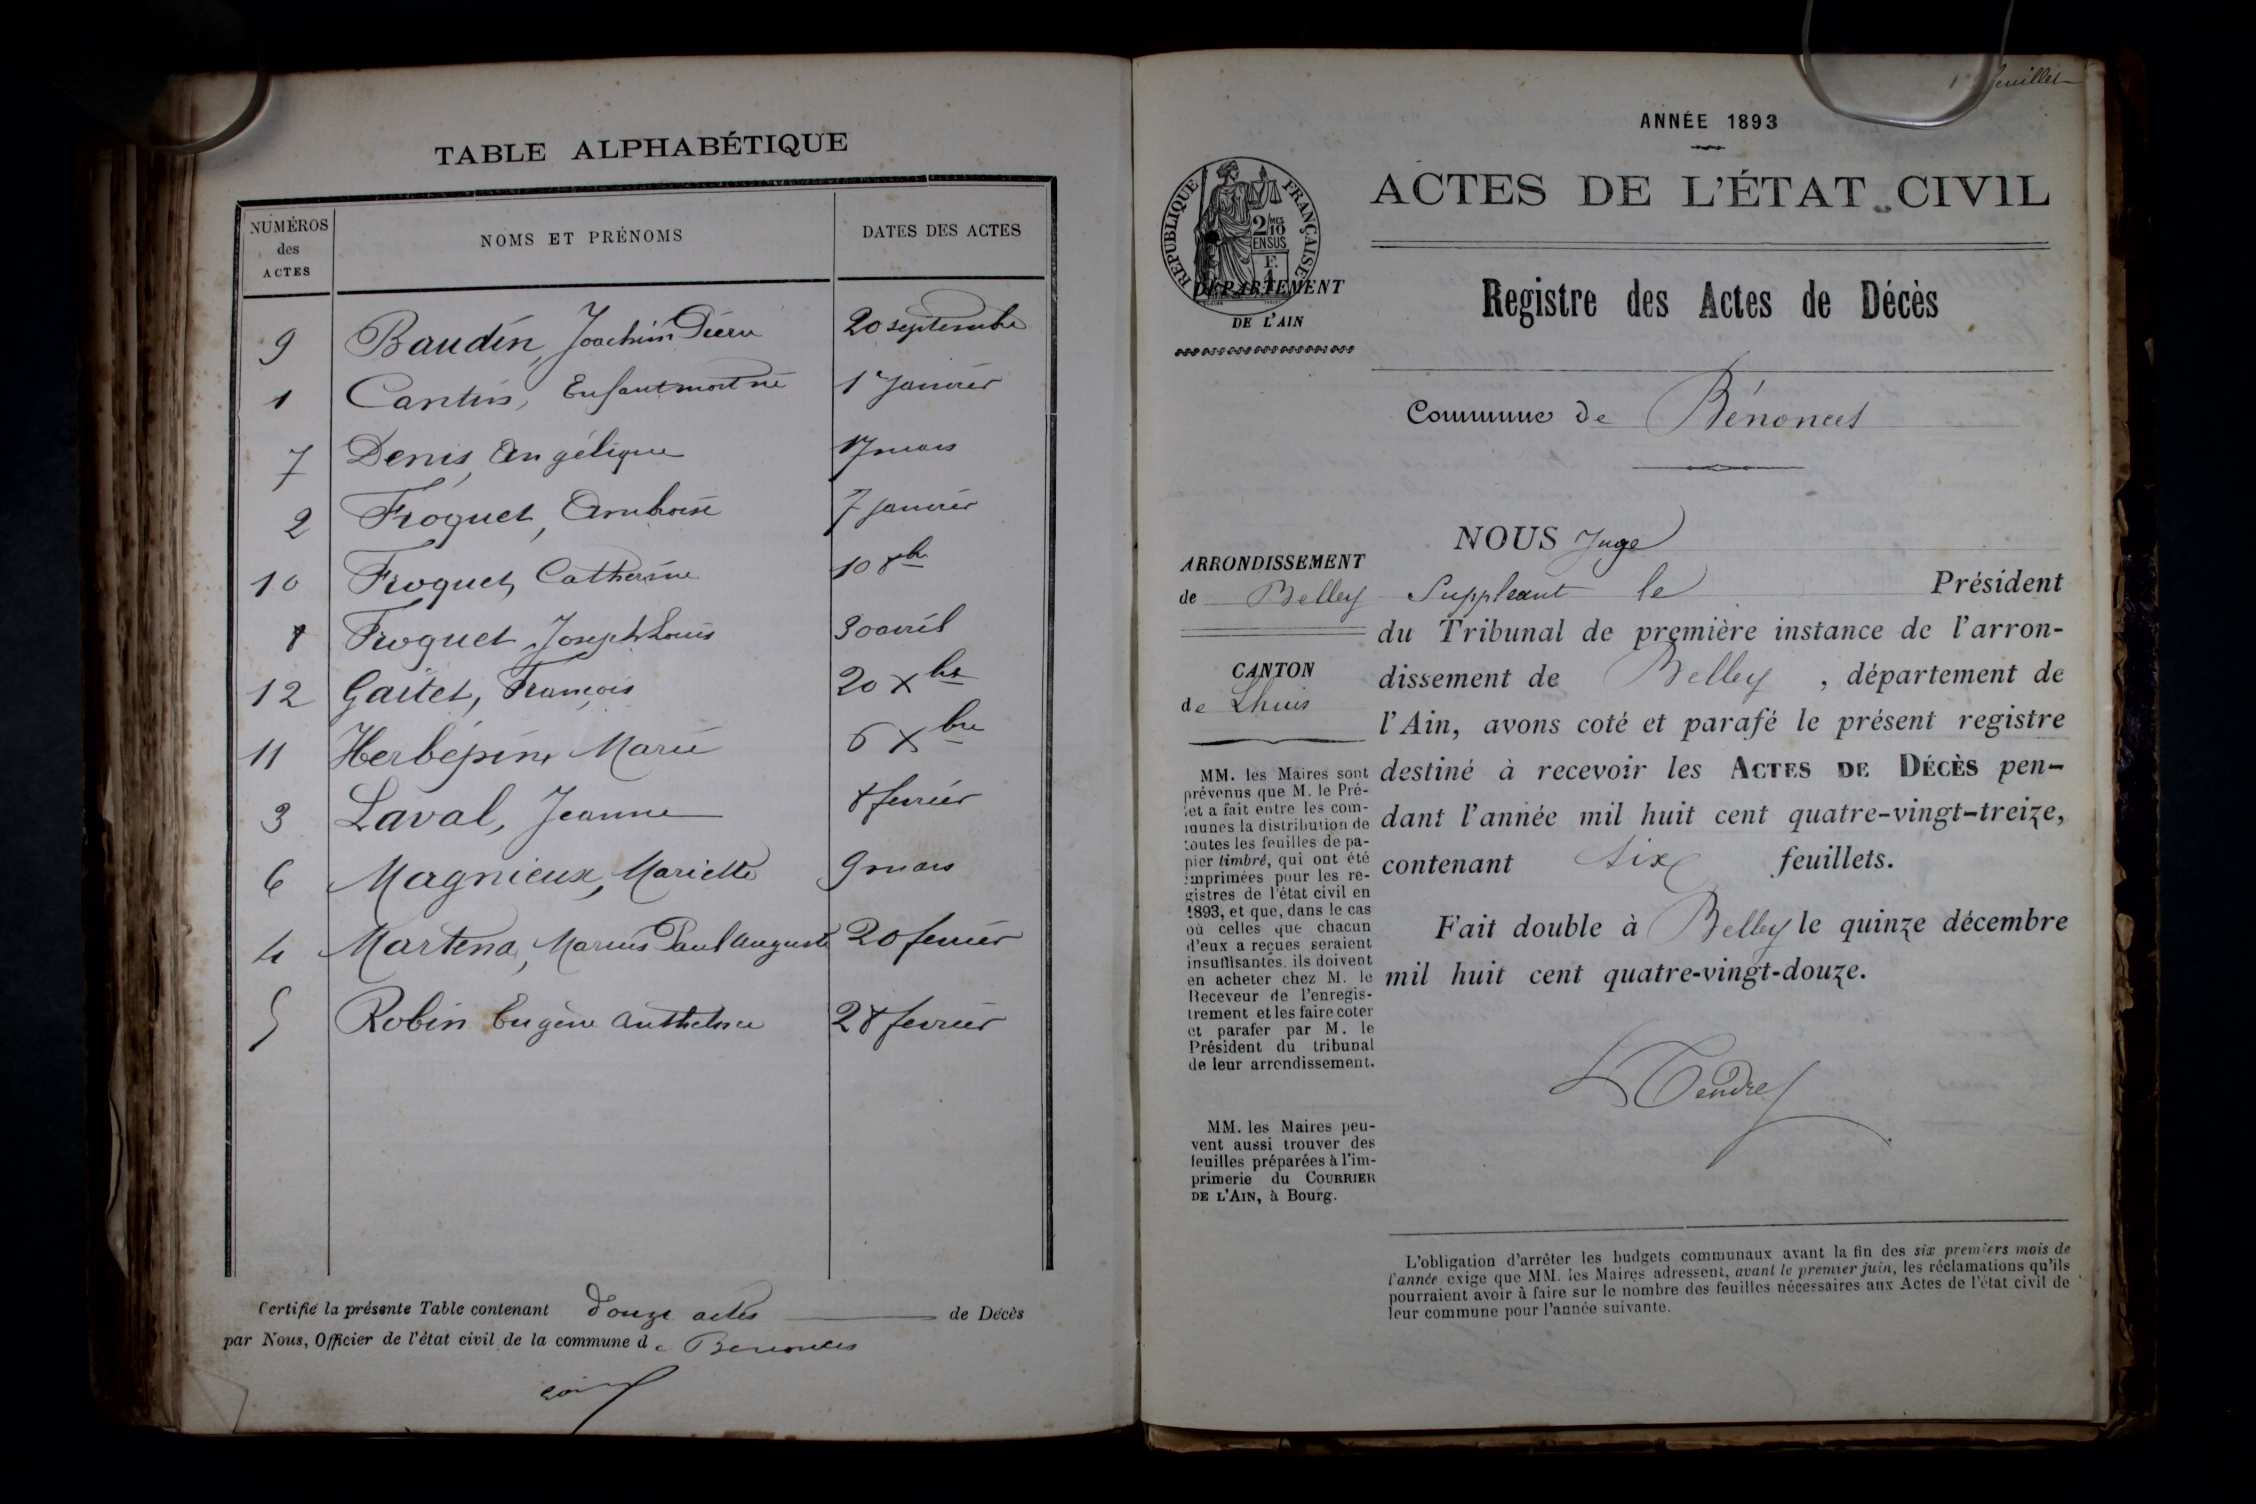 TABLE ALPHABÉTIQUE
NUMÉROS des ACTES
NOMS ET PRÉNOMS
DATES DES ACTES
9 Baudin, Joachim Pierre 20 septembre
1 Enfant mort né 1 Janvier
7 Denis, Angélique 17 mars
2 Froquet, Ambroise 7 janvier
10 Froquet, Catherine 10 8bre
8 Froquet, Joseph Louis 30 avril
12 Gaitet, François 20 Xbre
11 Herbépin, Marie 6 Xbre
3 Laval, Jeanne 8 fevrier
6 Magnieux, Mariette 9 mars
4 Martena, Marius Paul Auguste 20 fevrier
5 Robin Eugène Anthelme 28 fevrier
Certifié la présente Table contenant douze actes de Décès
par Nous, Officier de l'état civil de la commune de Benonces
1er feuillet
ANNÉE 1893
RÉPUBLIQUE FRANÇAISE
2/10
EN SUS
F.
1
ACTES DE L'ÉTAT CIVIL
DÉPARTEMENT
DE L'AIN
Registre des Actes de Décès
Commune de Bénonces
ARRONDISSEMENT
de Belley
CANTON
de Lhuis
MM. les Maires sont
prévenus que M. le Pré-
fet a fait entre les com-
munes la distribution de
toutes les feuilles de pa-
pier timbré, qui ont été
imprimées pour les re-
gistres de l'état civil en
1893, et que, dans le cas
où celles que chacun
d'eux a reçues seraient
insuffisantes, ils doivent
en acheter chez M. le
Receveur de l'enregis-
trement et les faire coter
et parafer par M. le
Président du tribunal
de leur arrondissement.
MM. les Maires peu-
vent aussi trouver des
feuilles préparées à l'im-
primerie du COURRIER
DE L'AIN, à Bourg.
NOUS Juge
Suppleant le Président
du Tribunal de première instance de l'arron-
dissement de Belley, département de
l'Ain, avons coté et parafé le présent registre
destiné à recevoir les ACTES DE DÉCÈS pen-
dant l'année mil huit cent quatre-vingt-treize,
contenant six feuillets.
Fait double à Belley le quinze décembre
mil huit cent quatre-vingt-douze.
L'obligation d'arrêter les budgets communaux avant la fin des six premiers mois de
l'année exige que MM. les Maires adressent, avant le premier juin, les réclamations qu'ils
pourraient avoir à faire sur le nombre des feuilles nécessaires aux Actes de l'état civil de
leur commune pour l'année suivante.